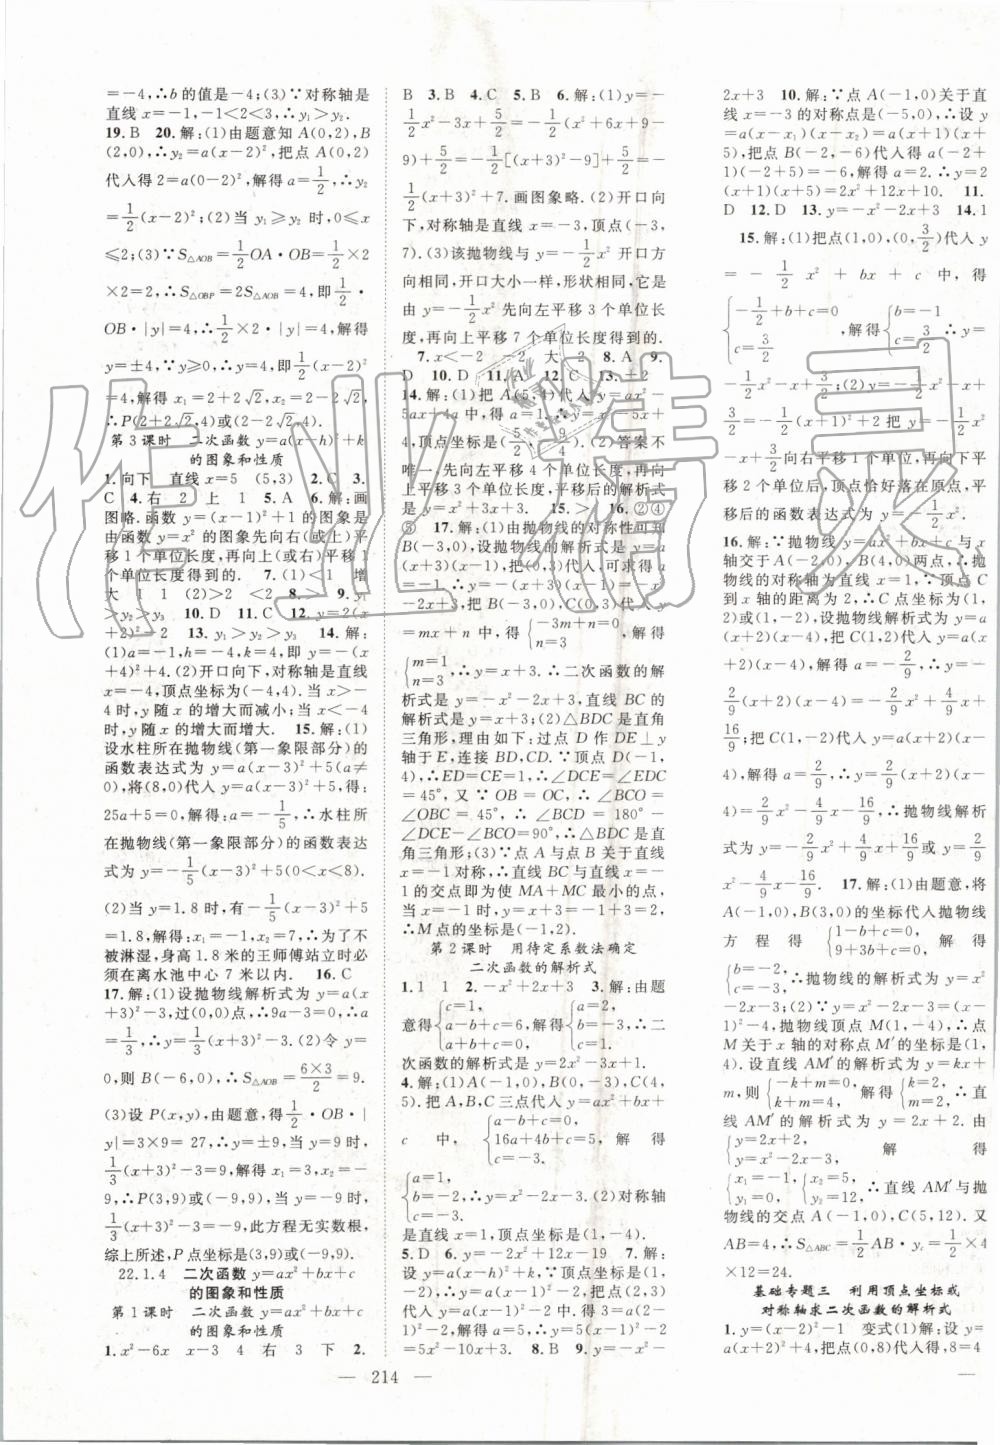 =-4,∴b的值是-4;(3)∵对称轴是
直线x=1,-1<2<3,∴y₁>y₂.
19.B 20.解:(1)由题意知A(0,2),B
(2,0),∴y₂=a(x-2)²,把点A(0,2)
代入得2=a(0-2)²,解得a=1/2,∴y₂
=1/2(x-2)²;(2)当y₁≥y₂时,0≤x
≤2;(3)∵S△AOB=1/2OA·OB=1/2×2
×2=2,∴S△OBP=2S△AOB=4,即1/2·
OB·|y|=4,∴1/2×2·|y|=4,解得
y=±4,∵y≥0,∴y=4,即1/2(x-2)²
=4,解得x₁=2+2√2,x₂=2-2√2,
∴P(2+2√2,4)或(2-2√2,4).
第3课时 二次函数y=a(x-h)²+k
的图象和性质
1.向下 直线x=5 (5,3) 2.C 3.
C 4.右 2 上 1 5.A 6.解:画
图略.函数y=(x-1)²+1的图象是
由函数y=x²的图象先向右(或上)平
移1个单位长度,再向上(或右)平移1
个单位长度得到的. 7.(1)<1 增
大 1 1 (2)>2 <2 8.> 9.y₁
>y₂>y₃ 10.D 11.C 12.y=2(x
+2)²-2 13.y₁>y₂>y₃ 14.解:
(1)a=-1,h=-4,k=4,即y=-(x
+4)²+4;(2)开口向下,对称轴是直线
x=-4,顶点坐标是(-4,4);当x>-
4时,y随x的增大而减小;当x<-4
时,y随x的增大而增大. 15.解:(1)
设水柱所在抛物线(第一象限部分)的
函数表达式为y=a(x-3)²+5(a≠
0),将(8,0)代入y=a(x-3)²+5,得:
25a+5=0,解得:a=-1/5,∴水柱所
在抛物线(第一象限部分)的函数表达
式为y=-1/5(x-3)²+5(0<x<8).
(2)当y=1.8时,有-1/5(x-3)²+5
=1.8,解得:x₁=-1,x₂=7,∴为了不
被淋湿,身高1.8米的王师傅站立时必
须在离水池中心7米以内. 16.C
17.解:(1)设抛物线解析式为y=a(x
+3)²-3,过(0,0)点,∴9a-3=0,∴a
=1/3,∴y=1/3(x+3)²-3.(2)令y
=0,则B(-6,0),∴S△AOB=6×3/2=9.
(3)设P(x,y),由题意,得1/2·OB·|
y|=3×9=27,∴y=±9,当y=9时,
1/3(x+3)²-3=9,解得x₁=3,x₂=-
9,∴P(3,9)或(-9,9);当y=-9时,
1/3(x+3)²-3=-9,此方程无实数根,
综上所述,P点坐标是(3,9)或(-9,9).
22.1.4 二次函数y=ax²+bx+c
的图象和性质
第1课时 二次函数y=ax²+bx+c
的图象和性质
1.x²-6x x-3 4 右 3 下 2.
B 3.B 4.C 5.B 6.解:(1)y=-
1/2x²-3x+5/2=-1/2(x²+6x+9-
9)+5/2=-1/2[(x+3)²-9]+5/2=
-1/2(x+3)²+7.画图象略.(2)开口向
下,对称轴是直线x=-3,顶点(-3,
7).(3)该抛物线与y=-1/2x²开口方
向相同,开口大小一样,形状相同,它是
由y=-1/2x²先向左平移3个单位长
度,再向上平移7个单位长度得到的.
7.x<-2 -2 大 2 8.A 9.
D 10.D 11.A 12.C 13.±2
14.解:(1)把A(5,4)代入y=ax²-
5ax+4a中,得a=1.∴y=x²-5x+
4,顶点坐标是(5/2,-9/4).(2)答案不
唯一,例如:先向左平移4个单位长度,再向
上平移3个单位长度,平移后的解析式
是y=x²+3x+3. 15.> 16.②④
⑤ 17.解:(1)由抛物线的对称性可知
B(-3,0),设抛物线的解析式是y=a
(x+3)(x-1),把(0,3)代入,可得a
=-1,∴y=-(x+3)(x-1)=-x²
-2x+3;把B(-3,0),C(0,3)代入y
=mx+n中,得{-3m+n=0, n=3, 解得
{m=1, n=3, ∴y=x+3.∴二次函数的解
析式是y=-x²-2x+3,直线BC的
解析式是y=x+3;(2)△BDC是直角
三角形,理由如下:过点D作DE⊥y
轴于E,连接BD,CD.∵顶点D(-1,
4),∴ED=CE=1,∴∠DCE=∠EDC
=45°,又∵OB=OC,∴∠BCO=
∠OBC=45°,∴∠BCD=180°-
∠DCE-∠BCO=90°,∴△BDC是直
角三角形;(3)∵点A与点B关于直线
x=-1对称,∴直线BC与直线x=-
1的交点即为使MA+MC最小的点,
当x=-1时,y=x+3=-1+3=2,
∴M点的坐标是(-1,2).
第2课时 用待定系数法确定
二次函数的解析式
1.1 1 2.-x²+2x+3 3.解:由题
意得{c=1, a-b+c=6, a+b+c=0, 解得{a=2, b=-3, c=1, ∴二
次函数的解析式是y=2x²-3x+1.
4.解:(1)A(-1,0),B(0,-3),C(4,
5).把A,B,C三点代入y=ax²+bx+
c中,得{a-b+c=0, 16a+4b+c=5, c=-3, 解得
{a=1, b=-2, c=-3. ∴y=x²-2x-3.(2)对称轴
是直线x=1,顶点坐标是(1,-4).
5.D 6.y=-2x²+12x-19 7.解:
∵抛物线与x轴交于点(-1,0),(1,
0),∴设y=a(x+1)(x-1),把点(2,3)
代入得3=a(2+1)(2-1),解得a=1.
∴y=(x+1)(x-1),即y=x²-1,∴-2
=5x²+10x 8.B 9.y=-x²-
2x+3 10.解:∵点A(-1,0)关于直
线x=-3的对称点是(-5,0),∴设y
=a(x-x₁)(x-x₂)=a(x+1)(x+
5),把点B(-2,-6)代入得a(-2+
1)(-2+5)=-6,解得a=2.∴y=
2(x+1)(x+5)=2x²+12x+10. 11.
D 12.D 13.y=-x²-2x+3 14.1
15.解:(1)把点(1,0),(0,3/2)代入y
=-1/2x²+bx+c中,得
{-1/2+b+c=0, c=3/2, 解得{b=-1, c=3/2, ∴y=
-1/2x²-x+3/2;(2)∵y=-1/2x²-x
+3/2=-1/2(x+1)²+2,∴把y=-1/2x²
-x+3/2向右平移1个单位,再向下平
移2个单位后,顶点恰好落在原点,平
移后的函数表达式为y=-1/2x².
16.解:∵抛物线y=ax²+bx+c与x
轴交于A(-2,0),B(4,0)两点,∴抛
物线的对称轴为直线x=1,∵顶点C
到x轴的距离为2,∴C点坐标为(1,
2)或(1,-2),设抛物线解析式为y=a
(x+2)(x-4),把C(1,2)代入y=a(x
+2)(x-4),解得a=-2/9,∴y=-
2/9(x+2)(x-4)=-2/9x²+4/9x+
16/9;把C(1,-2)代入y=a(x+2)(x-
4),解得a=2/9,∴y=2/9(x+2)(x-
4)=2/9x²-4/9x-16/9,∴抛物线解析
式为y=-2/9x²+4/9x+16/9或y=2/9
x²-4/9x-16/9. 17.解:(1)由题意,将
A(-1,0),B(3,0)的坐标代入抛物线
方程得{1-b+c=0, 9+3b+c=0, 解得
{b=-2, c=-3. ∴抛物线的解析式为y=x²
-2x-3;(2)∵y=x²-2x-3=(x-
1)²-4,∴抛物线顶点M(1,-4),∴点
M关于x轴的对称点M′的坐标是(1,
4).设直线AM′的解析式为y=kx+
m,则{-k+m=0, k+m=4, 解得{k=2, m=2, ∴直
线AM′的解析式为y=2x+2.由
{y=2x+2, y=x²-2x-3, 解得
{x₁=-1, y₁=0, {x₂=5, y₂=12, ∴直线AM′与抛
物线的交点A(-1,0),C(5,12).又
AB=4,∴S△ABC=1/2AB·y_c=1/2×4
×12=24.
基础专题三 利用顶点坐标或
对称轴求二次函数的解析式
1.y=(x-2)²-1 变式(1)解:设y=
a(x+2)²+4,把点(0,8)代入得,8=4
— 214 —
作业精灵